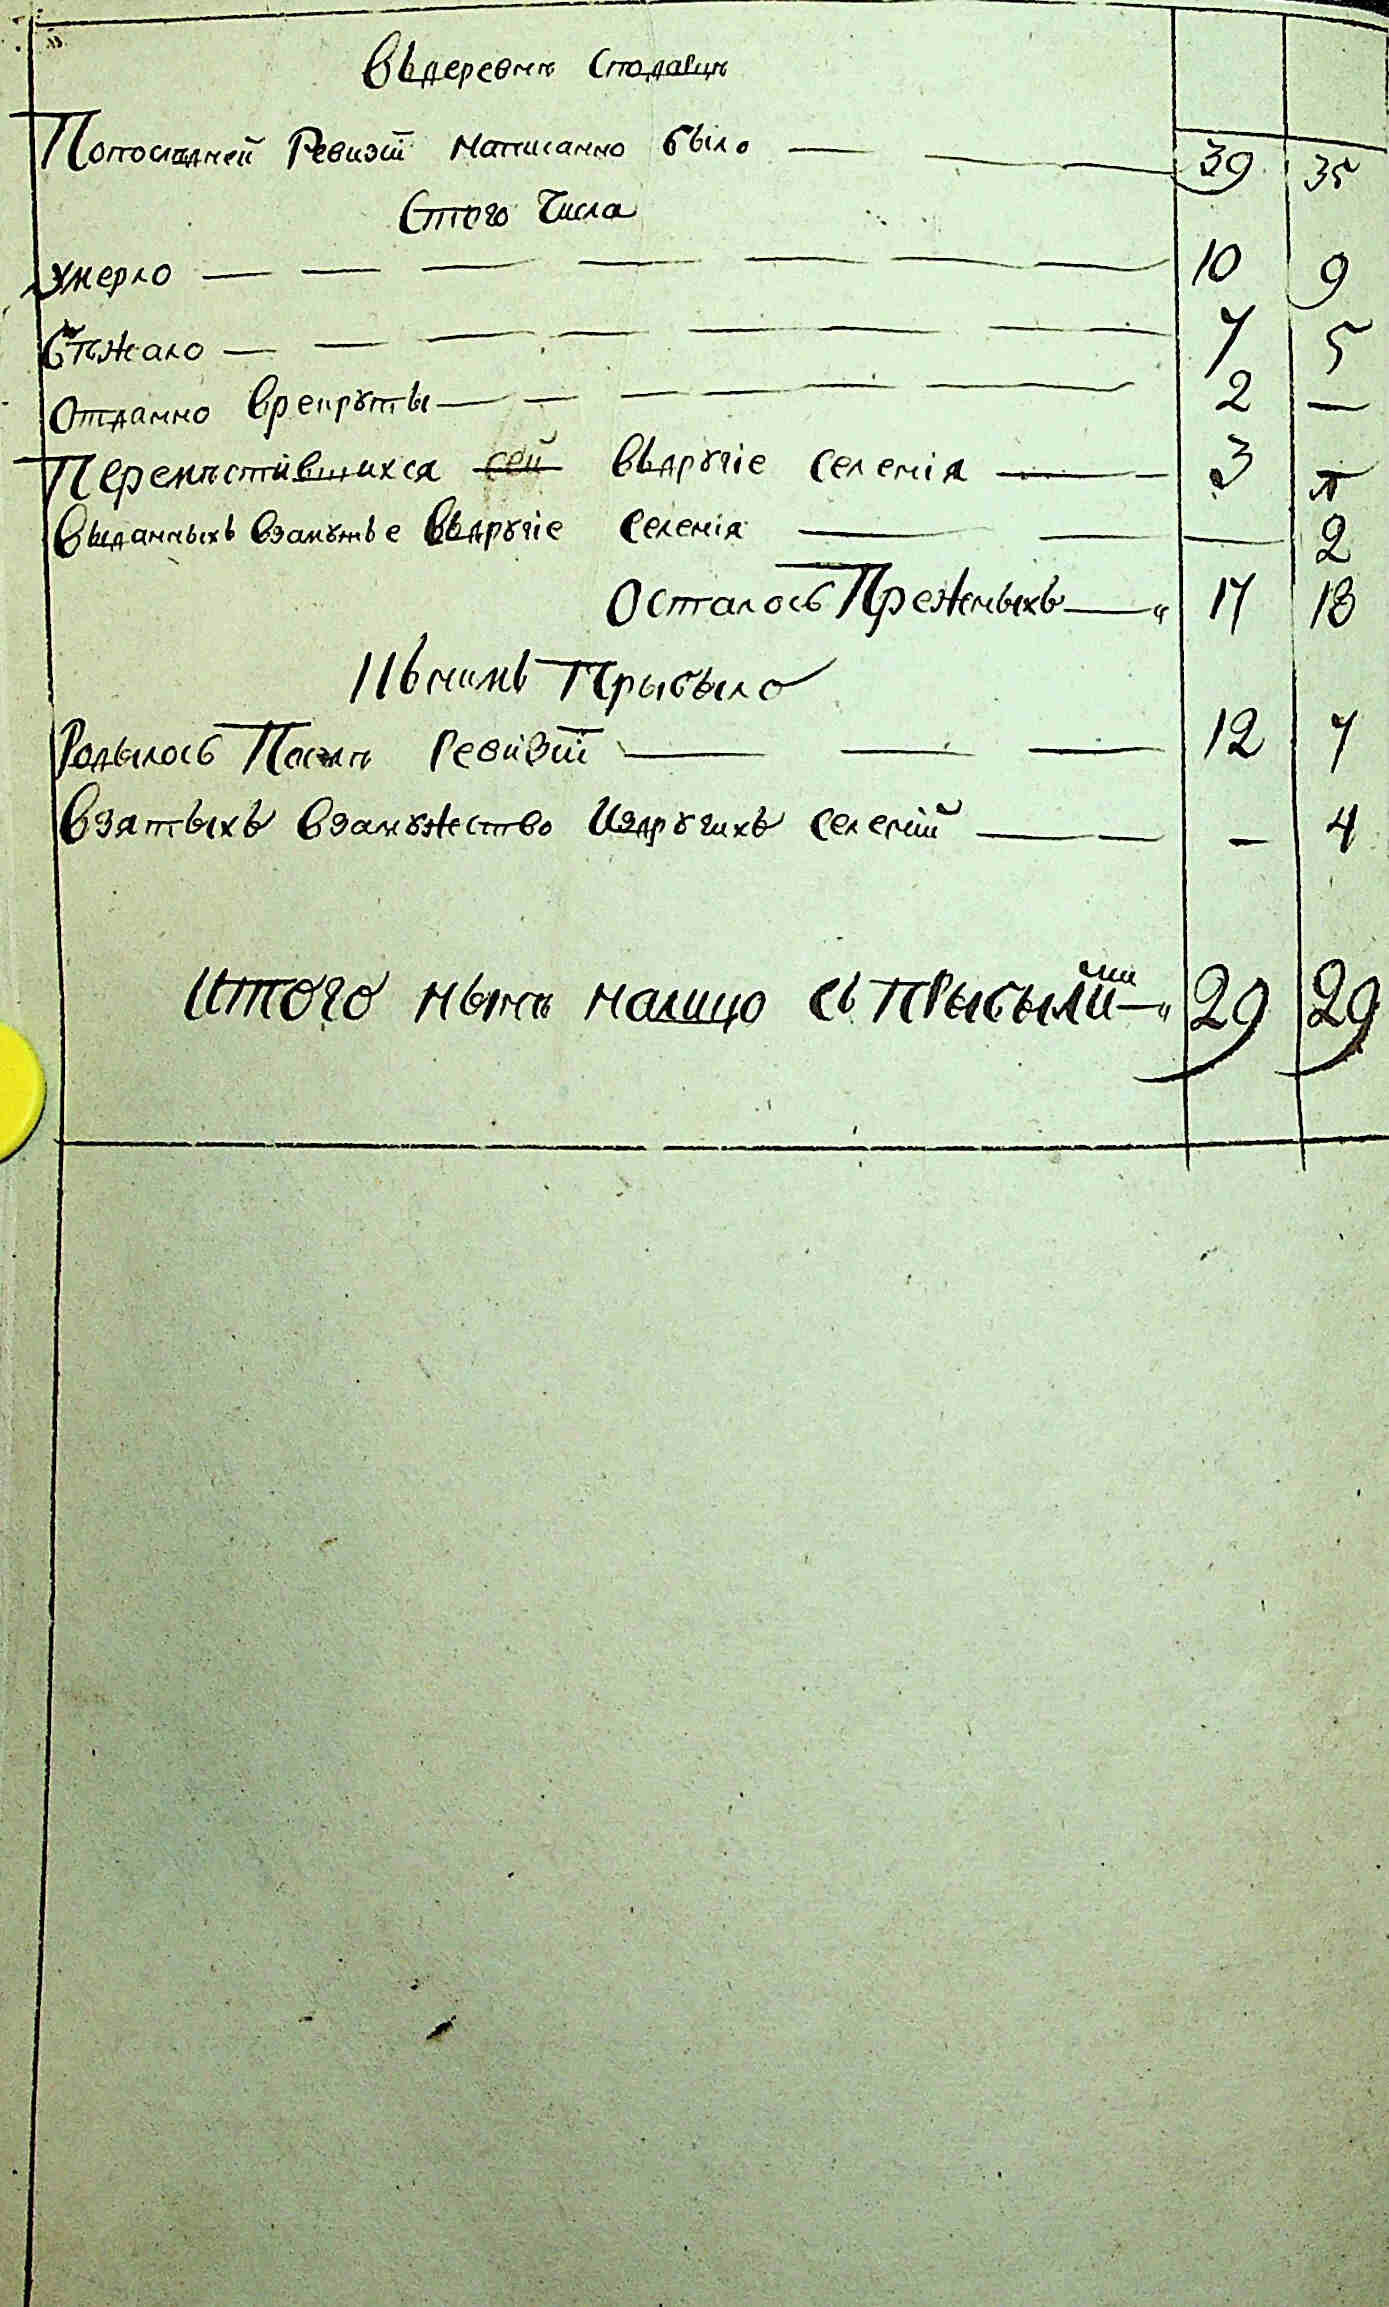 Въдеревнѣ
Попослѣдней Ревизіи написанно было — — 39 35
Стого Числа
умерло — — — — — — — 10 9
бѣжало — — — — — — — 7 5
отданно врекруты — — — — — 2 —
Перемѣстившихся въдругіе селенія — — 3
выданныхъ взамужъе въдругіе селенія — — — 2
Осталось Прежныхъ — „ 17 18
Кънимъ Прыбыло
Родылось Послѣ Ревизіи — — — 12 7
взятыхъ взамужество издругихъ селеній — — - 4
итого нынѣ налицо съ прыбылими — „ 29 29